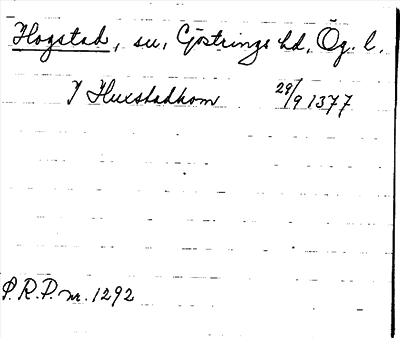 Hogstad, sn, Göstrings hd, Ög. l.
J Huxstadhom 29/9 1377
P.R.P. nr. 1292